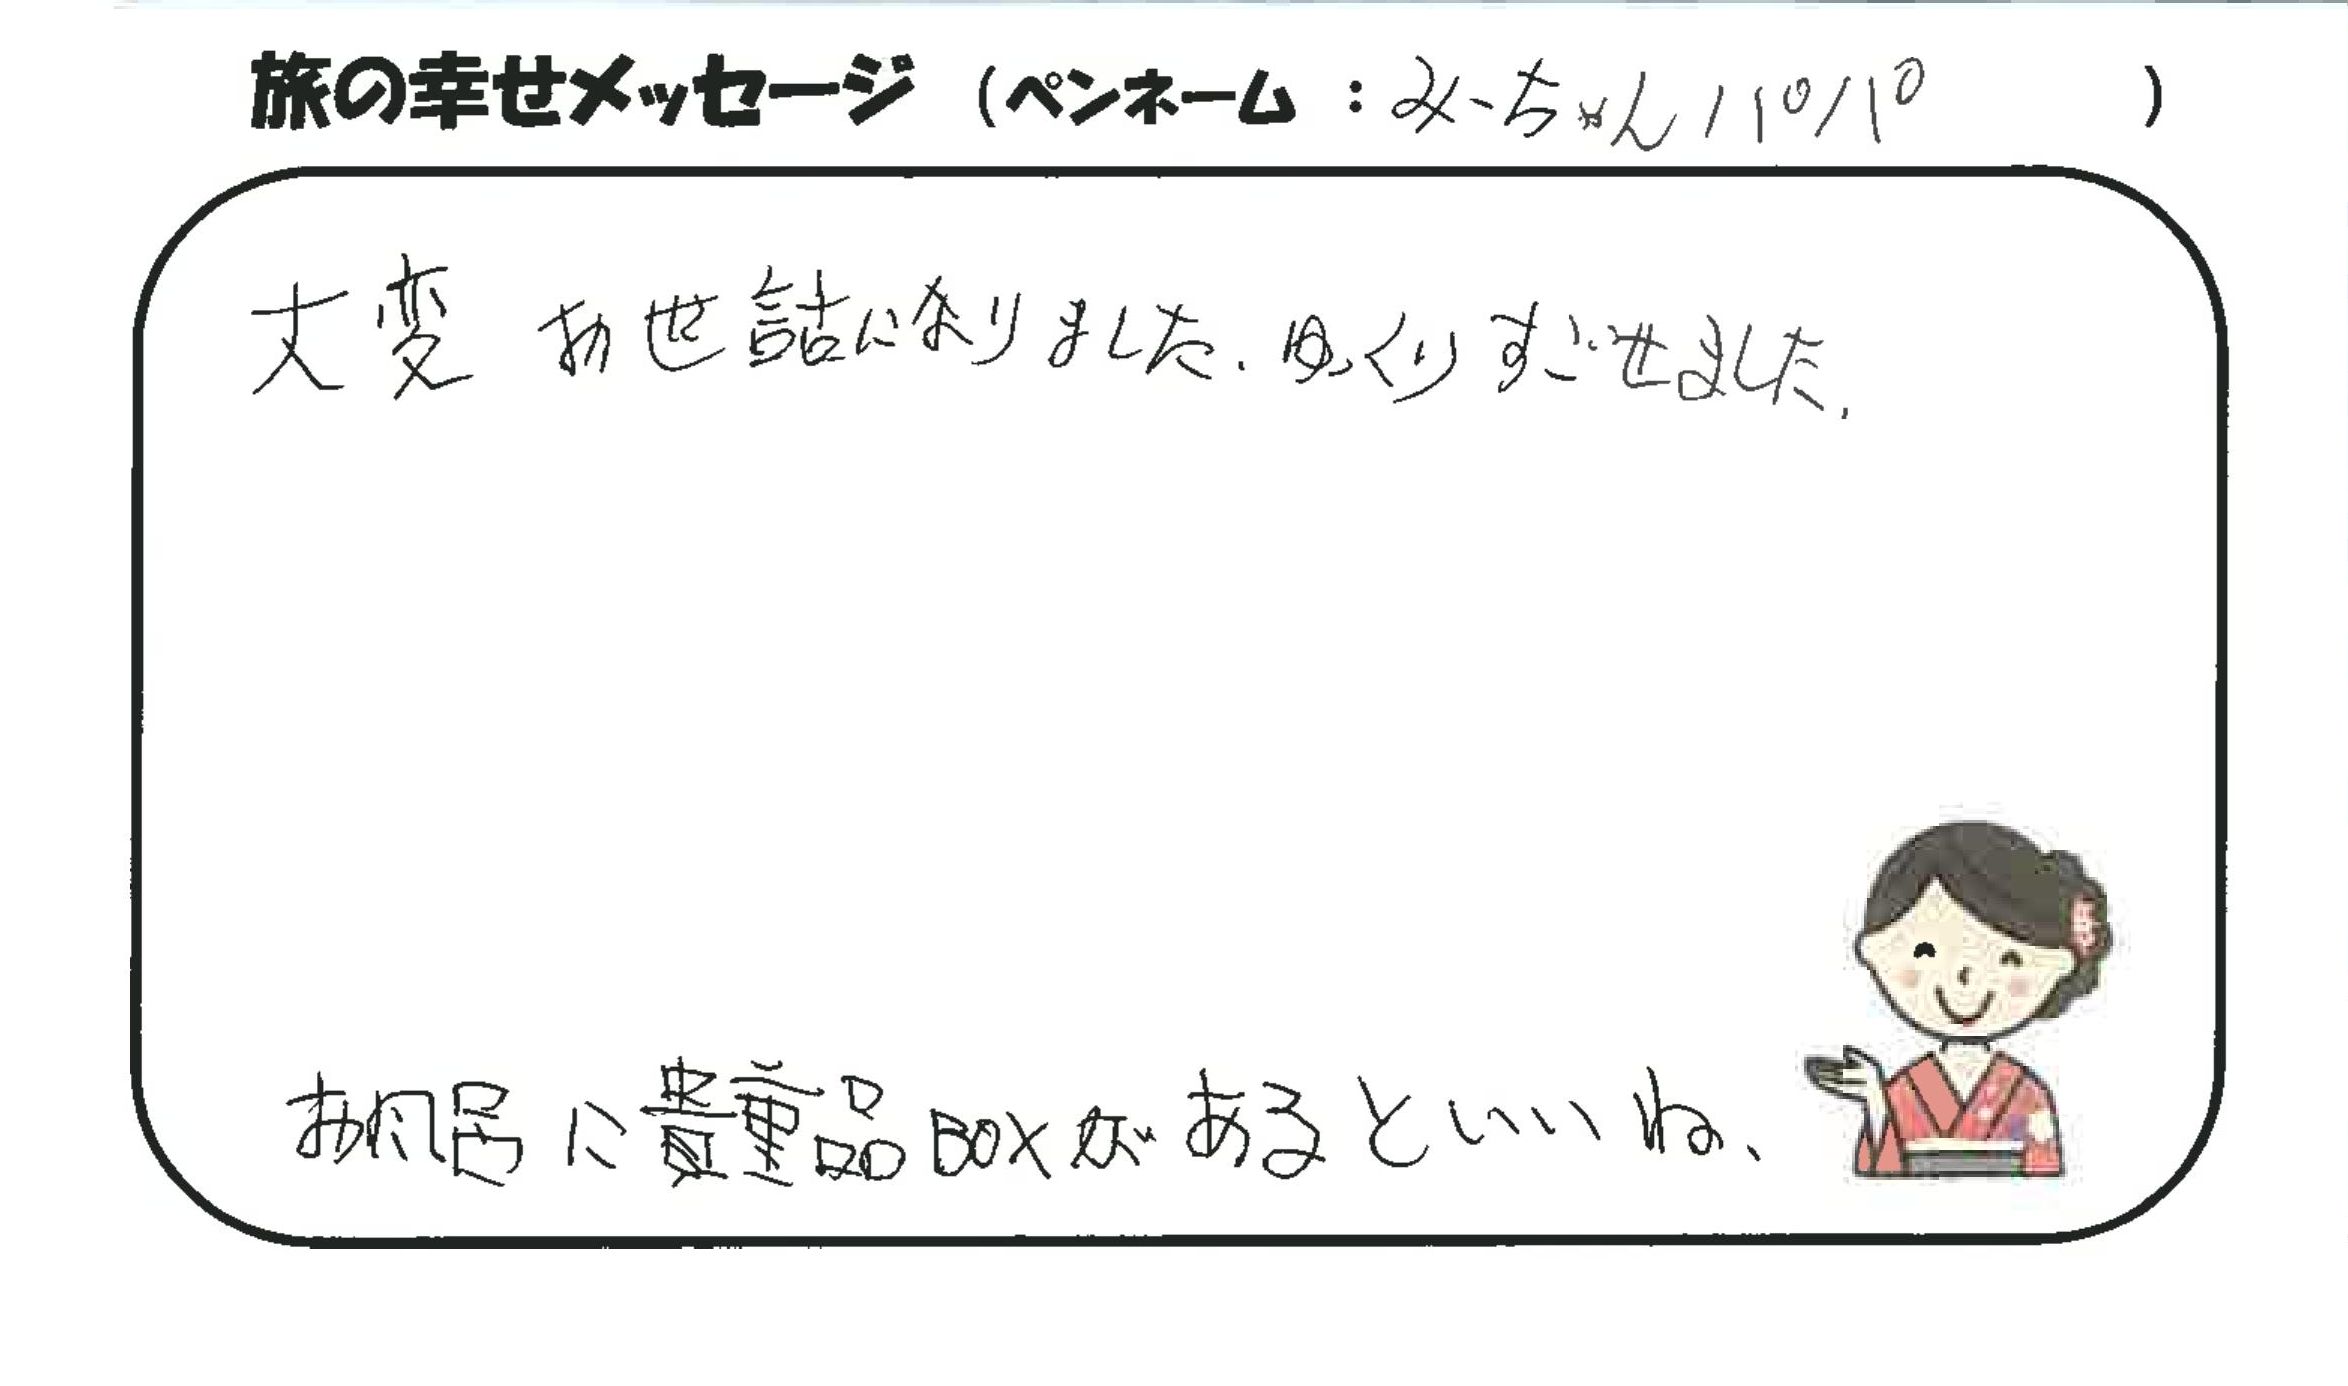 旅の幸せメッセージ (ペンネーム : みーちゃん / 10/10 )
大変 お世話になりました. ゆっくりすごせました.
お風呂に貴重品BOXがあるといいね、